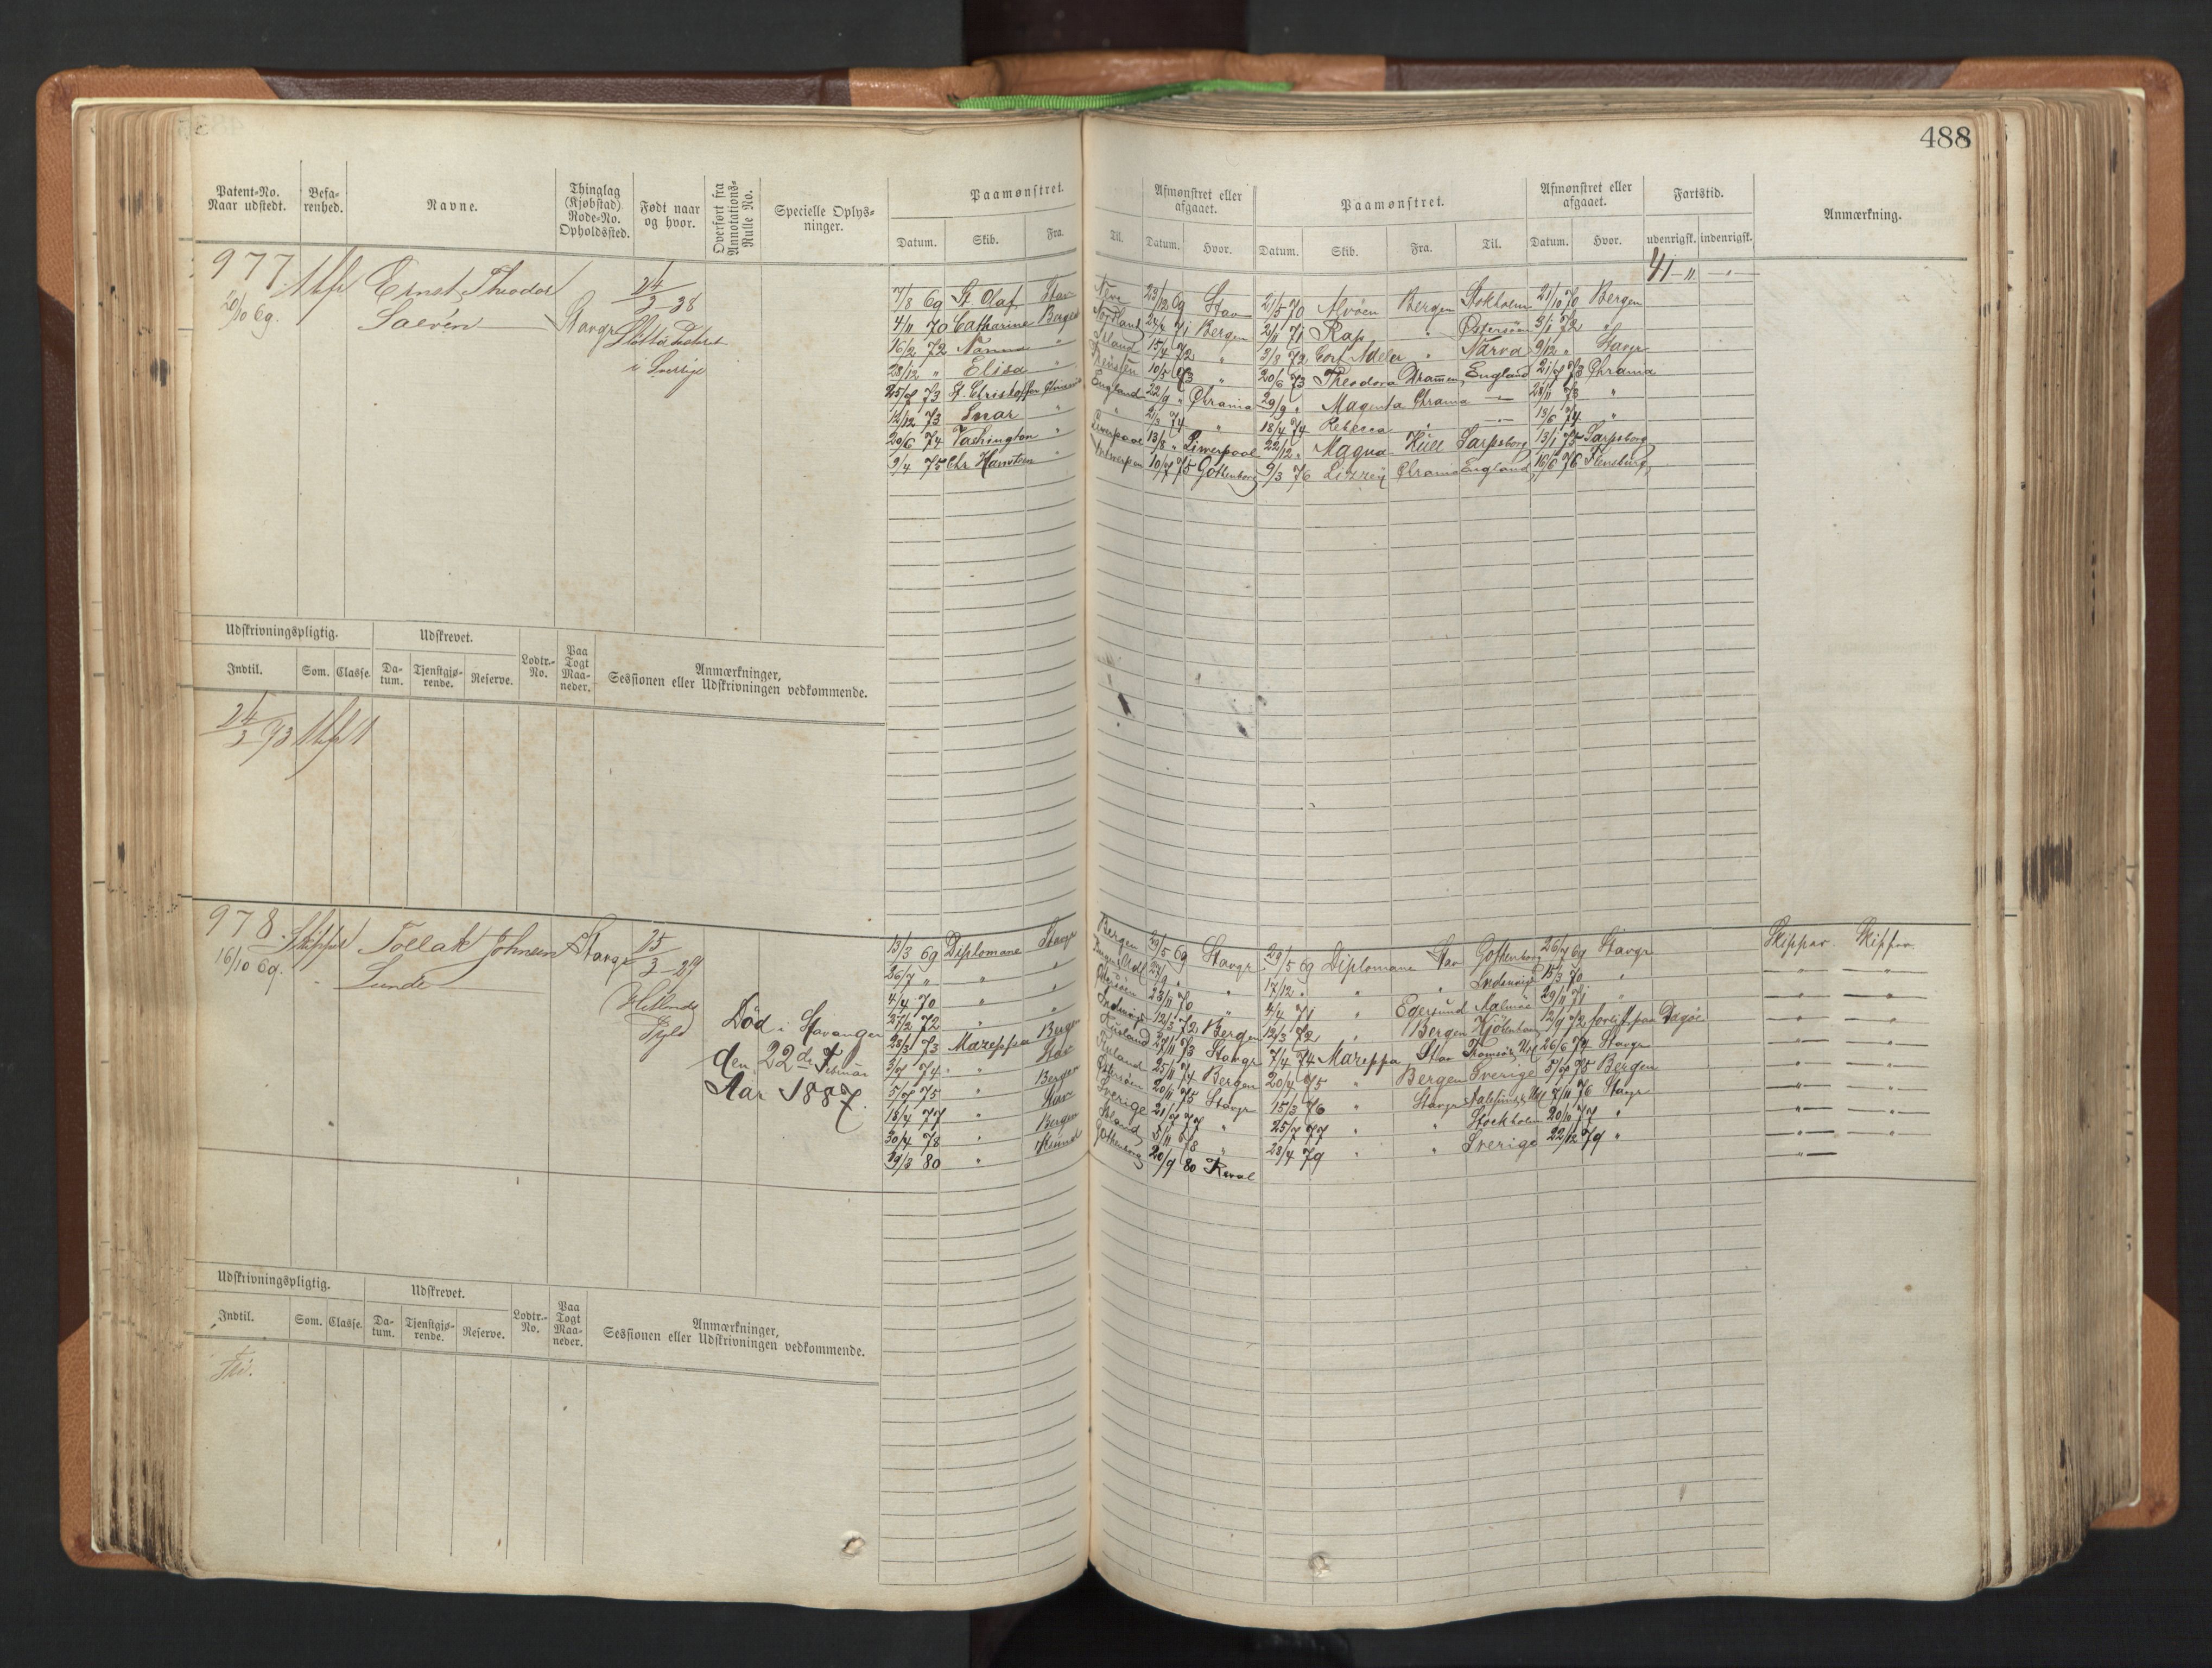 488
Patent-No. Naar udstedt.
Befarenhed.
Navne.
Thinglag (Kjøbstad) Rode-No. Opholdssted.
Født naar og hvor.
Overført fra Annotations-Rulle No.
Specielle Oplysninger.
Paamønstret.
Datum. Skib. Fra. Til.
Afmønstret eller afgaaet.
Datum. Hvor.
Paamønstret.
Datum. Skib. Fra. Til.
Afmønstret eller afgaaet.
Datum. Hvor.
Fartstid.
udenrigsk. indenrigsk.
Anmærkning.
977
20/10 69.
Ernst Theodor
Saevén
Stavgr
24/3-38
i Sverige
41 - " - " -
7/8 69 St Olaf Stav 23/12 69 Stav 21/5 70 Alvøen Bergen Stokholm 21/10 70 Bergen
4/11 70 Catharine Bergen Nordland 71 Bergen 2/11 71 Rap " Østersøen 3/1 72 "
16/2 72 Nanna " Island 15/4 72 " 3/8 72 Cort Adeler " Narva 9/12 " Stavgr
23/12 " Elisa " 10/5 73 " 20/6 73 Theodora Drammen England 21/7 73 Chrania
25/7 73 St. Christoffer England 22/9 " Chrania 29/9 " Magenta Chrania — 28/11 73 "
12/12 73 Snar " " 2/3 74 " 18/4 74 Rebecca " — 13/6 74 "
20/6 74 Vashington " Liverpool 13/8 " Liverpool 22/12 " Magna Hull Sarpsborg 13/1 75 Sarpsborg
9/4 75 Chr Hansteen " Antwerpen 10/7 75 Gothenborg 9/3 76 Lizzey Chrania England 16/6 76 Flensburg
Udskrivningspligtig.
Udskrevet.
Indtil. Som. Classe.
Datum. Tjenstgjørende. Reserve.
Lodtr.-No.
Paa Togt Maaneder.
Anmærkninger, Sessionen eller Udskrivningen vedkommende.
24/3 93
978.
16/10 69.
Skipper
Tollak Johnsen
Lunde
Stavgr
25/3-29
Død i Stavanger
den 22de Februar
Aar 1887.
13/3 69 Diplomane Stavgr Bergen 29/5 69 Stavgr 29/5 69 Diplomane Stav Gothenborg 26/7 69 Stavgr Skipper Skipper
26/7 " " " " 17/12 " " " Indenrigs 15/3 70 " — " — — " —
4/4 70 " " 23/11 70 " 4/4 71 " Egersund Malmøe 29/11 71 " — " — — " —
27/2 72 " " Indenrigs 12/3 72 Bergen 12/3 72 " Bergen Kjøbenhavn 12/9 72 forlist paa Dagøe — " — — " —
28/3 73 Mazeppa Bergen Rusland 73 Stavgr 7/4 74 Mazeppa Stav 26/6 74 Stavgr — " — — " —
3/7 74 " Stav Rusland 25/11 74 Bergen 20/4 75 " Bergen Sverige 3/7 75 Bergen — " — — " —
5/7 75 " Bergen Østersøen 20/11 75 Stavgr 15/3 76 " Stavgr 7/11 76 Stavgr — " — — " —
18/4 77 " Stav Sverige 21/7 77 " 25/7 77 " " Stockholm 20/11 77 " — " — — " —
30/4 78 " Bergen Island 78 " 28/4 79 " " Sverige 22/12 79 " — " — — " —
29/3 80 " Gothenborg 20/9 80 Reval — " —
Udskrivningspligtig.
Udskrevet.
Indtil. Som. Classe.
Datum. Tjenstgjørende. Reserve.
Lodtr.-No.
Paa Togt Maaneder.
Anmærkninger, Sessionen eller Udskrivningen vedkommende.
Fri.